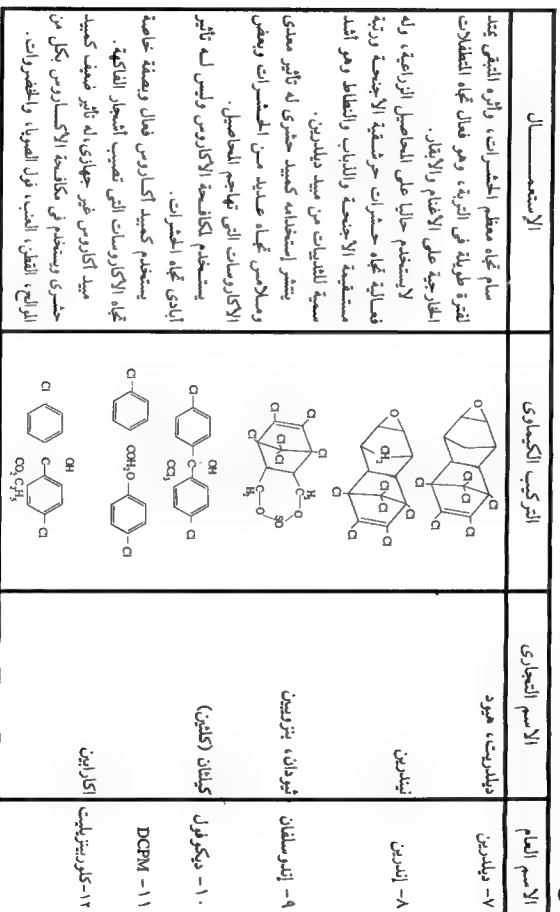 الاسم العام
الاسم التجارى
التركيب الكيماوى
الإستعمـــــال
٧- ديلدرين
ديلدريت، هيود
O
Cl
Cl
Cl
Cl
Cl
Cl
سام تجاه معظم الحشرات، واثره المتبقى يمتد
لفترة طويلة فى التربة، وهو فعال تجاه المتطفلات
الخارجية على الأغنام والأبقار.
٨- إندرين
نيندرين
O
CH₂
Cl
Cl
Cl
Cl
Cl
Cl
لا يستخدم حاليا على المحاصيل الزراعية، وله
فعالية تجاه حشرات حرشفية الأجنحة ورتبة
مستقيمة الأجنحة والذباب والنطاط وهو أشد
سمية للثدييات من مبيد ديلدرين.
٩- إندوسلفان
ثيودان، بنزويين
Cl
Cl
Cl
Cl
Cl
Cl
C–O
H₂
SO
C–O
H₂
ينتشر إستخدامه كمبيد حشرى له تأثير معدى
وملامس تجاه عديد من الحشرات وبعض
الاكاروسات التى تهاجم المحاصيل.
١٠- ديكوفول
كيلثان (كلثين)
Cl
OH
C
CCl₃
Cl
يستخدم لمكافحة الاكاروس وليس له تأثير
أبادى تجاه الحشرات.
١١- DCPM
Cl
OCH₂O
Cl
يستخدم كمبيد أكاروس فعال وبصفة خاصة
تجاه الاكاروسات التى تصيب أشجار الفاكهة.
١٢-كلوربنزيليت
اكارابين
Cl
OH
C
CO₂C₂H₅
Cl
مبيد أكاروس غير جهازى، له تأثير ضعيف كمبيد
حشرى ويستخدم فى مكافحة الاكاروس بكل من
الموالح، القطن، العنب، فول الصويا، والخضروات.